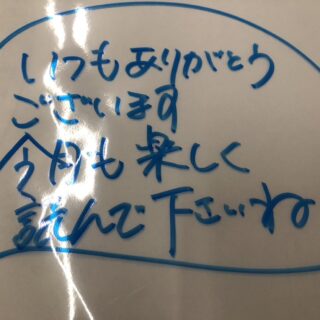 いつもありがとう
ございます
今月も楽しく
読んで下さいね